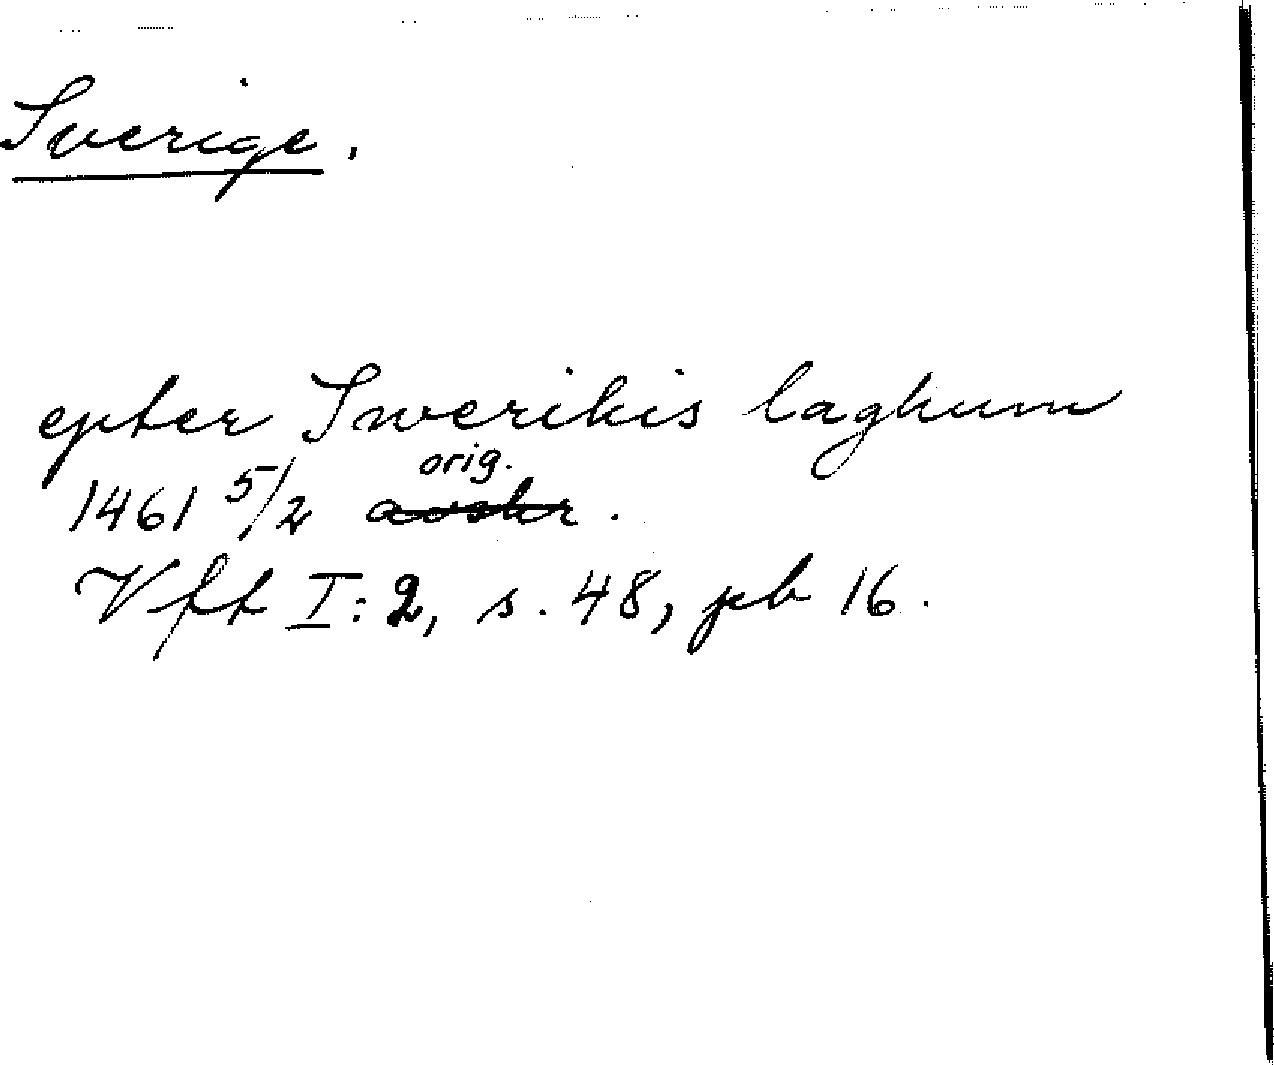 Sverige.
epter Swerikis laghum
orig.
1461 5/2 avskr.
Vff I:2, s. 48, pb 16.